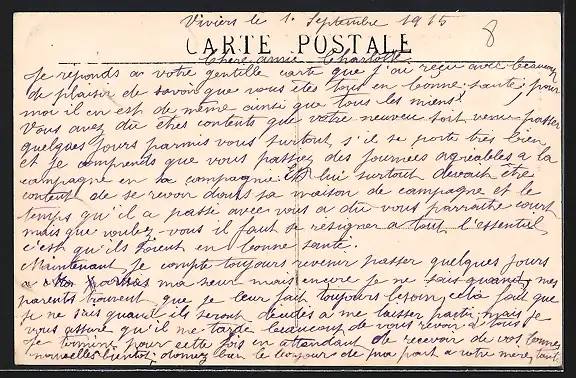 Viviers le 1. Septembre 1915
8
CARTE POSTALE
Chère amie Charlotte
Je reponds a votre gentille carte que j'ai reçu avec beaucoup
de plaisir de savoir que vous êtes tous en bonne santé; pour
moi il en est de même ainsi que tous les miens.
Vous avez du êtres contents que votre neveu soit venu passer
quelques jours parmis vous surtout s'il se porte très bien
et je comprends que vous passiez des journees agréables a la
campagne en sa compagnie. Et lui surtout devait être
content de se revoir dans sa maison de campagne et le
temps qu'il a passé avec vous a du vous parraitre court
mais que voulez-vous il faut se resigner a tout l'essentiel
c'est qu'ils soient en bonne santé.
Maintenant je compte toujours revenir passer quelques jours
a ma sœur mais encore je ne sais quand, mes
parents trouvent que je leur fait toujours besoin, cela fait que
je ne sais quand ils seront decidés a me laisser partir, mais je
vous assure qu'il me tarde beaucoup de vous revoir a tous
Je termine pour cette fois en attendant de recevoir de vos bonnes
nouvelles bientot; donnez bien le bonjour de ma part a votre mere, tante